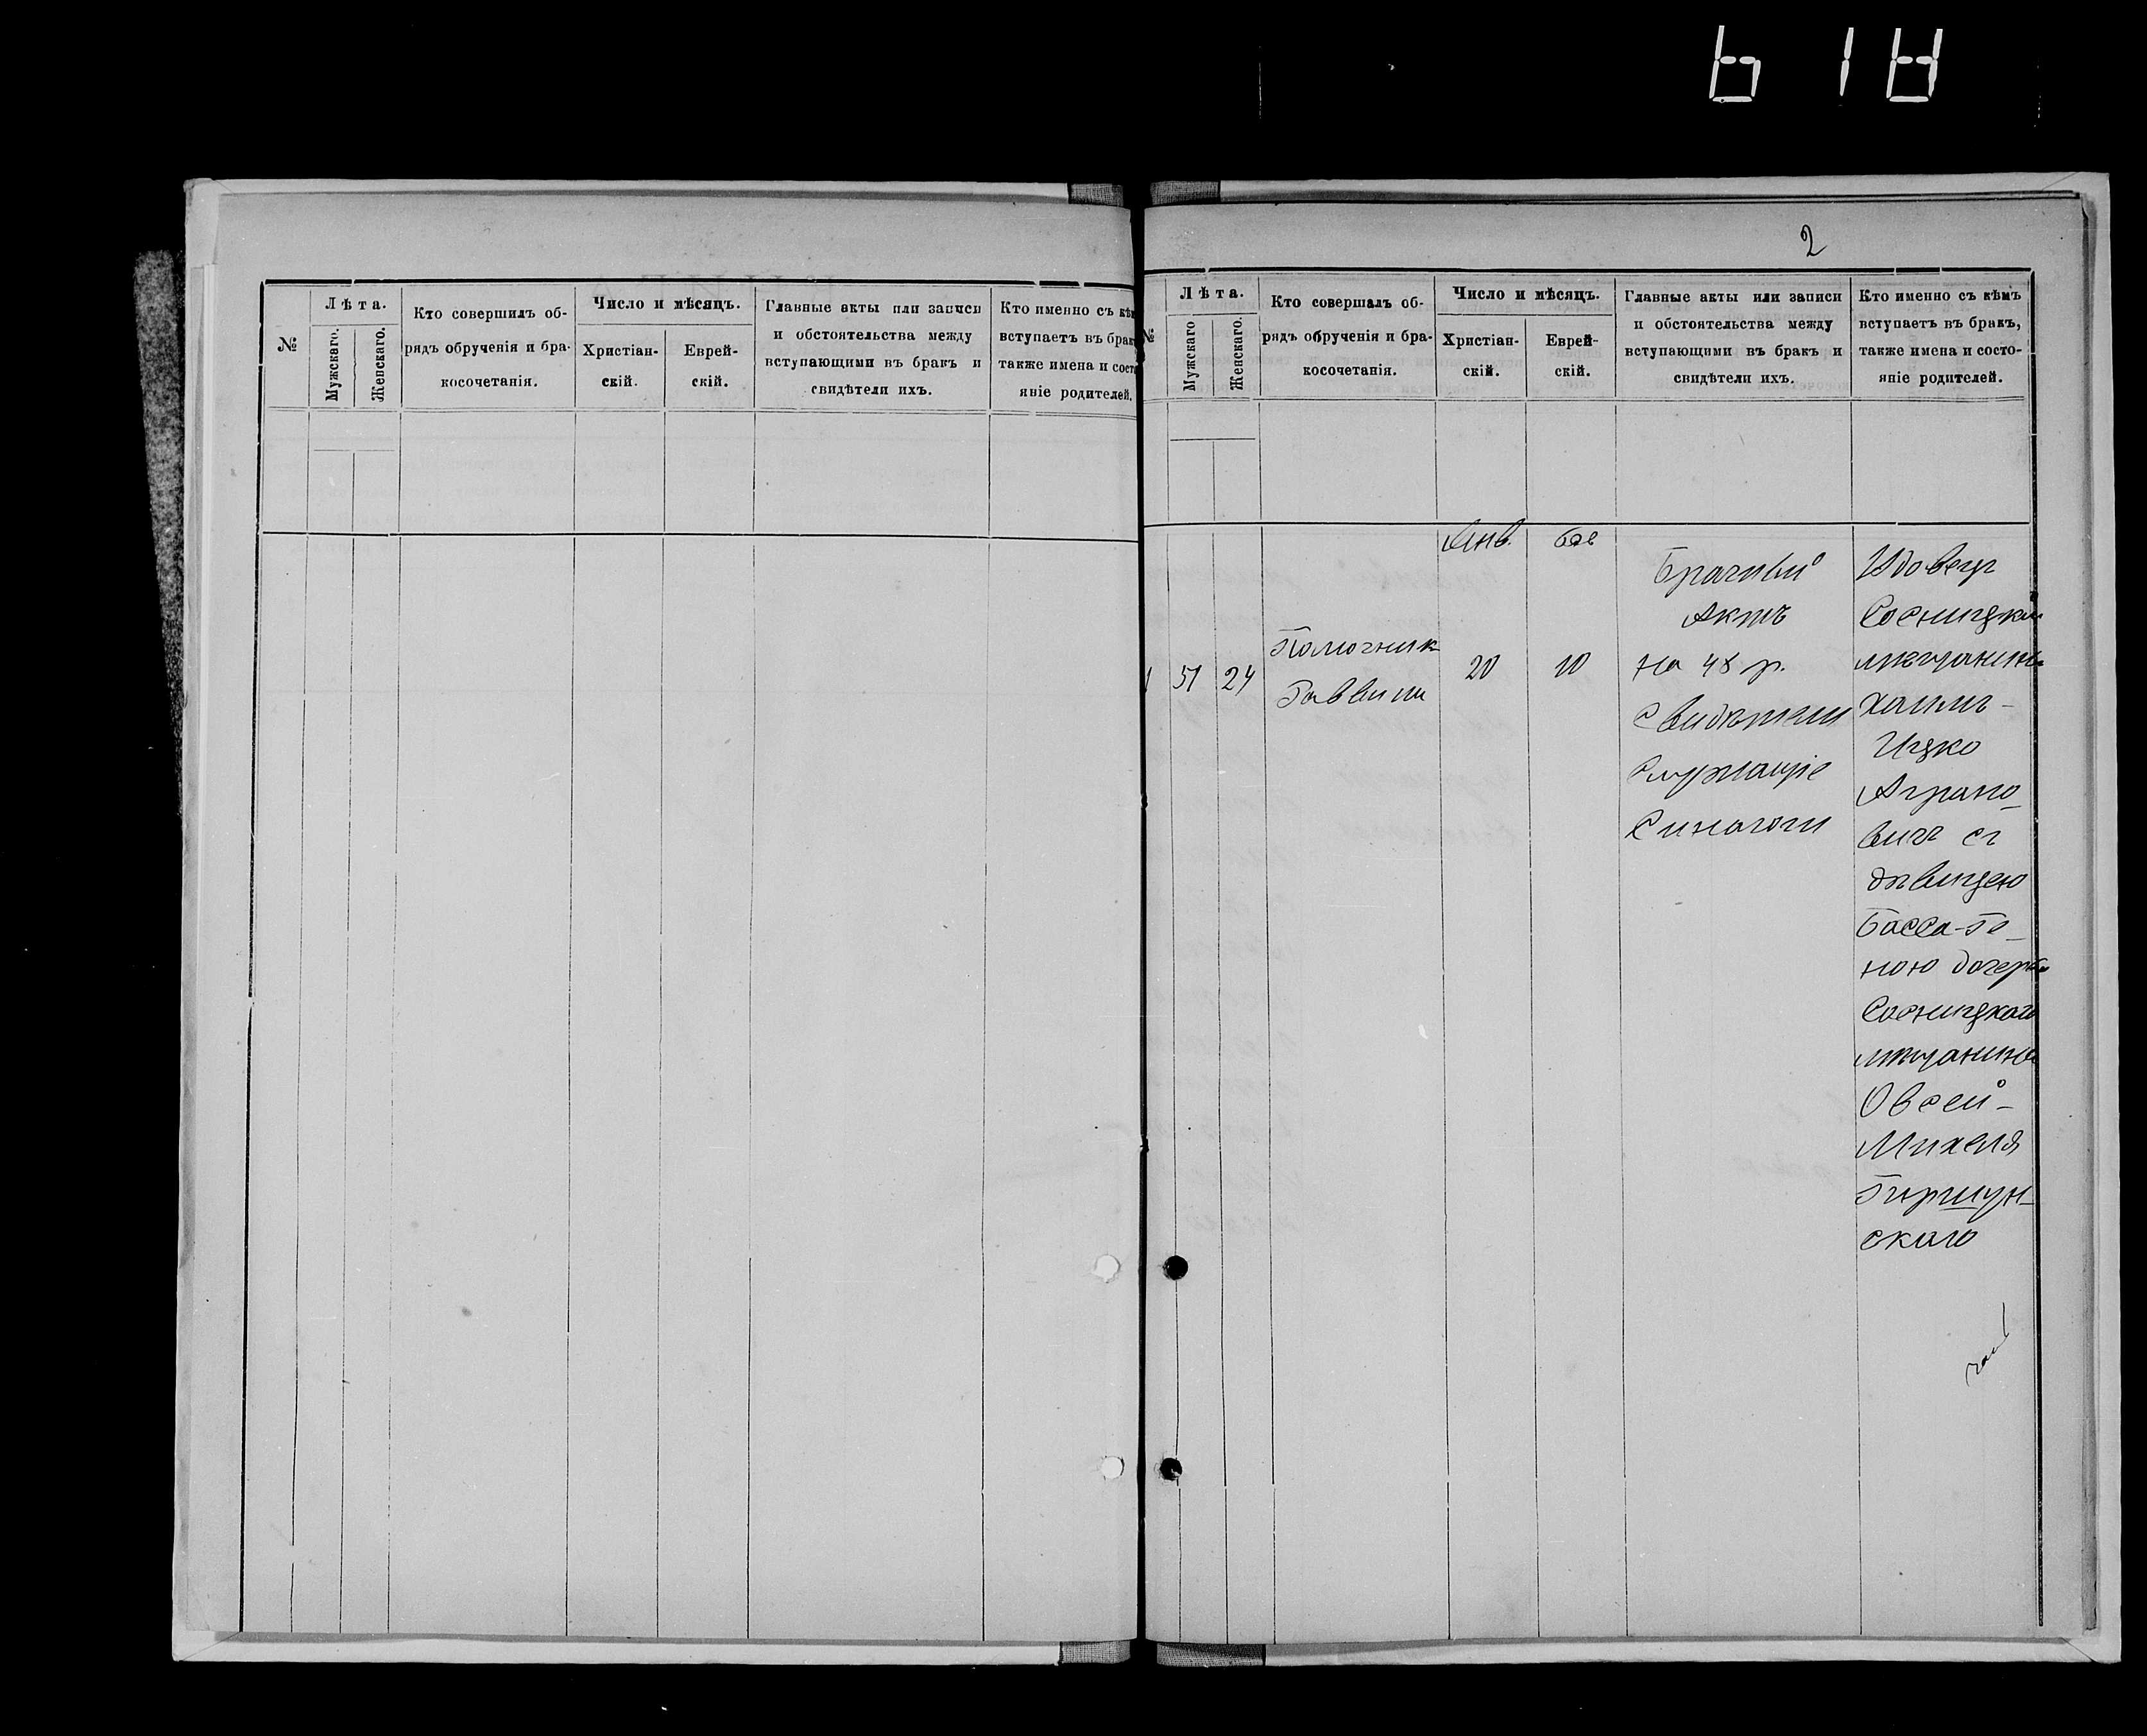 2
№
Лѣта.
Мужскаго.
Женскаго.
Кто совершилъ об-
рядъ обрученія и бра-
косочетанія.
Число и мѣсяцъ.
Христіан-
скій.
Еврей-
скій.
Главные акты или записи
и обстоятельства между
вступающими въ бракъ и
свидѣтели ихъ.
Кто именно съ кѣм
вступаетъ въ брак
также имена и состо
яніе родителей.
№
Лѣта.
Мужскаго
Женскаго.
Кто совершалъ об-
рядъ обрученія и бра-
косочетанія.
Число и мѣсяцъ.
Христіан-
скій.
Еврей-
скій.
Главные акты или записи
и обстоятельства между
вступающими въ бракъ и
свидѣтели ихъ.
Кто именно съ кѣмъ
вступаетъ въ бракъ,
также имена и состо-
яніе родителей.
1
51
24
Помочник
Раввина
Янв.
20
10
Брачный
Актъ
на 48 р.
Свидѣтели
Служащіе
Синагоги
Вдовецъ
Сосницкій
мѣщанинъ
Хаимъ-
Ицко
Аграно-
вичъ съ
дѣвицею
Басса-Ге-
ною дочерью
Сосницкаго
мѣщанина
Овсей-
Михеля
Гиршун-
скаго